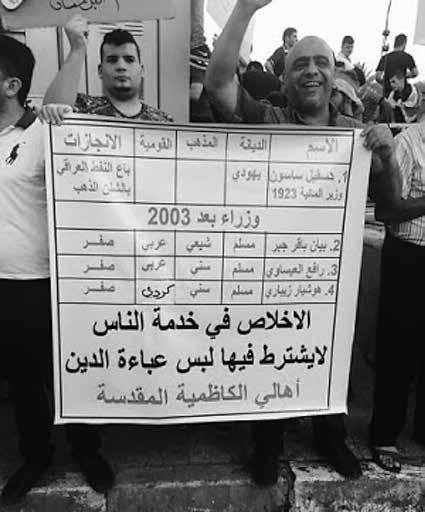 الأسم الديانة المذهب القومية الانجازات
1. حسقيل ساسون وزير المالية 1923 يهودي باع النفط العراقي بالشلن الذهب
وزراء بعد 2003
2. بيان باقر جبر مسلم شيعي عربي صفر
3. رافع العيساوي مسلم سني عربي صفر
4. هوشيار زيباري مسلم سني كردي صفر
الاخلاص في خدمة الناس
لايشترط فيها لبس عباءة الدين
أهالي الكاظمية المقدسة